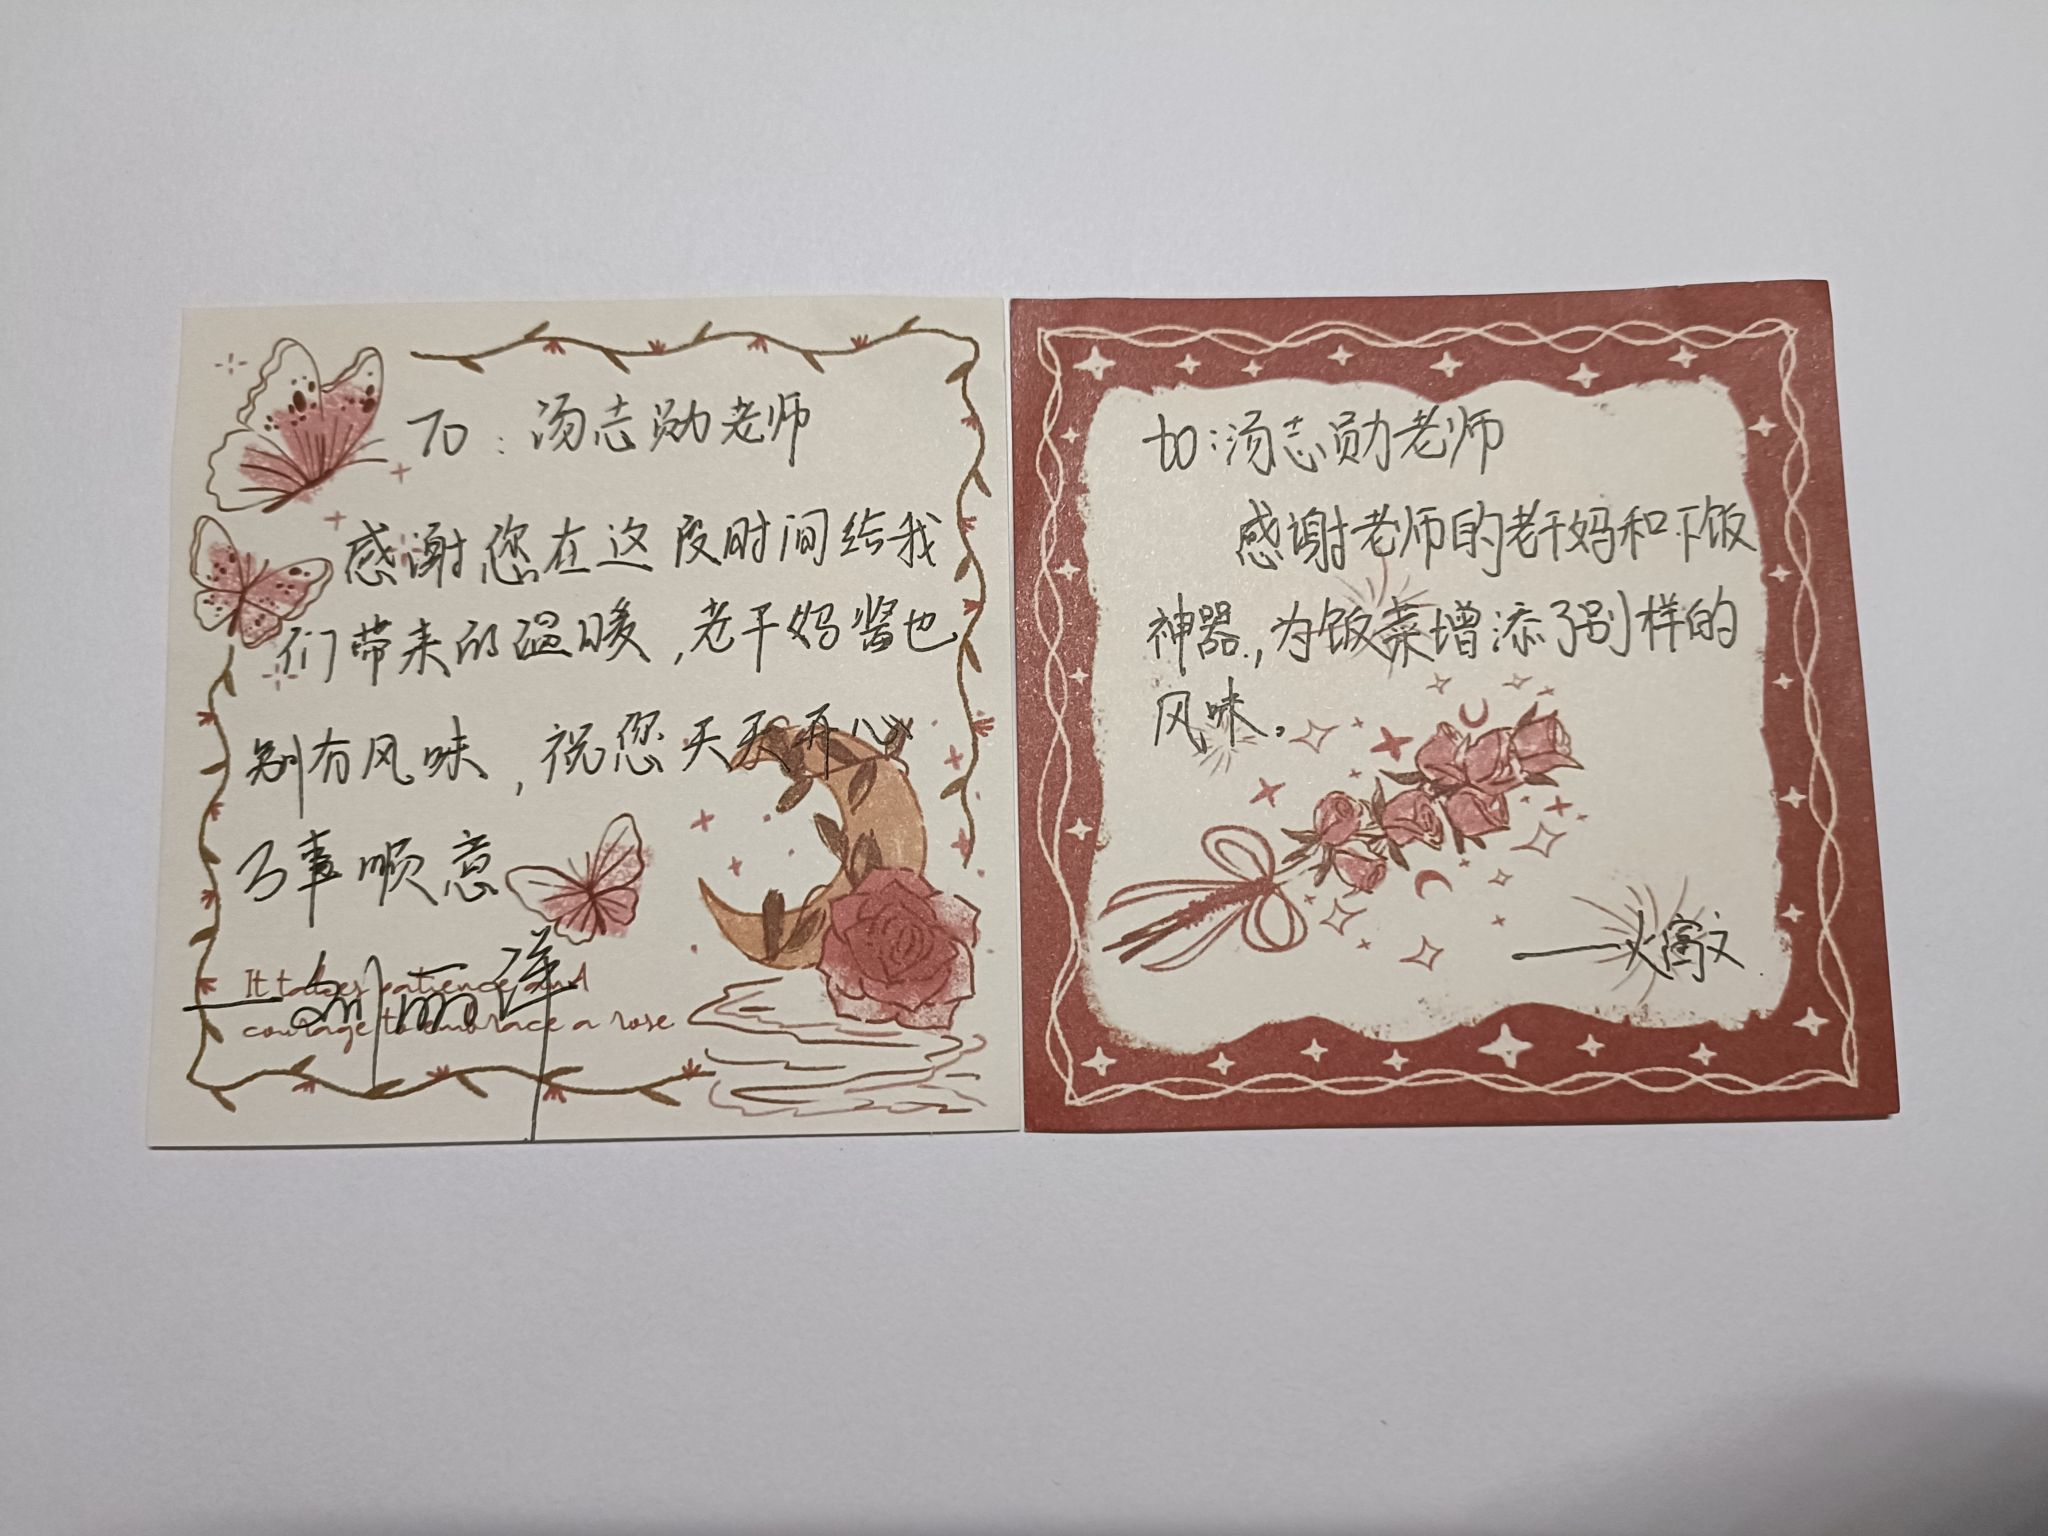 To：汤志勋老师
感谢您在这段时间给我
们带来的温暖，老干妈酱也
别有风味，祝您天天开心
万事顺意
It takes patience and
courage to embrace a rose
to：汤志勋老师
感谢老师的老干妈和下饭
神器，为饭菜增添了别样的
风味。